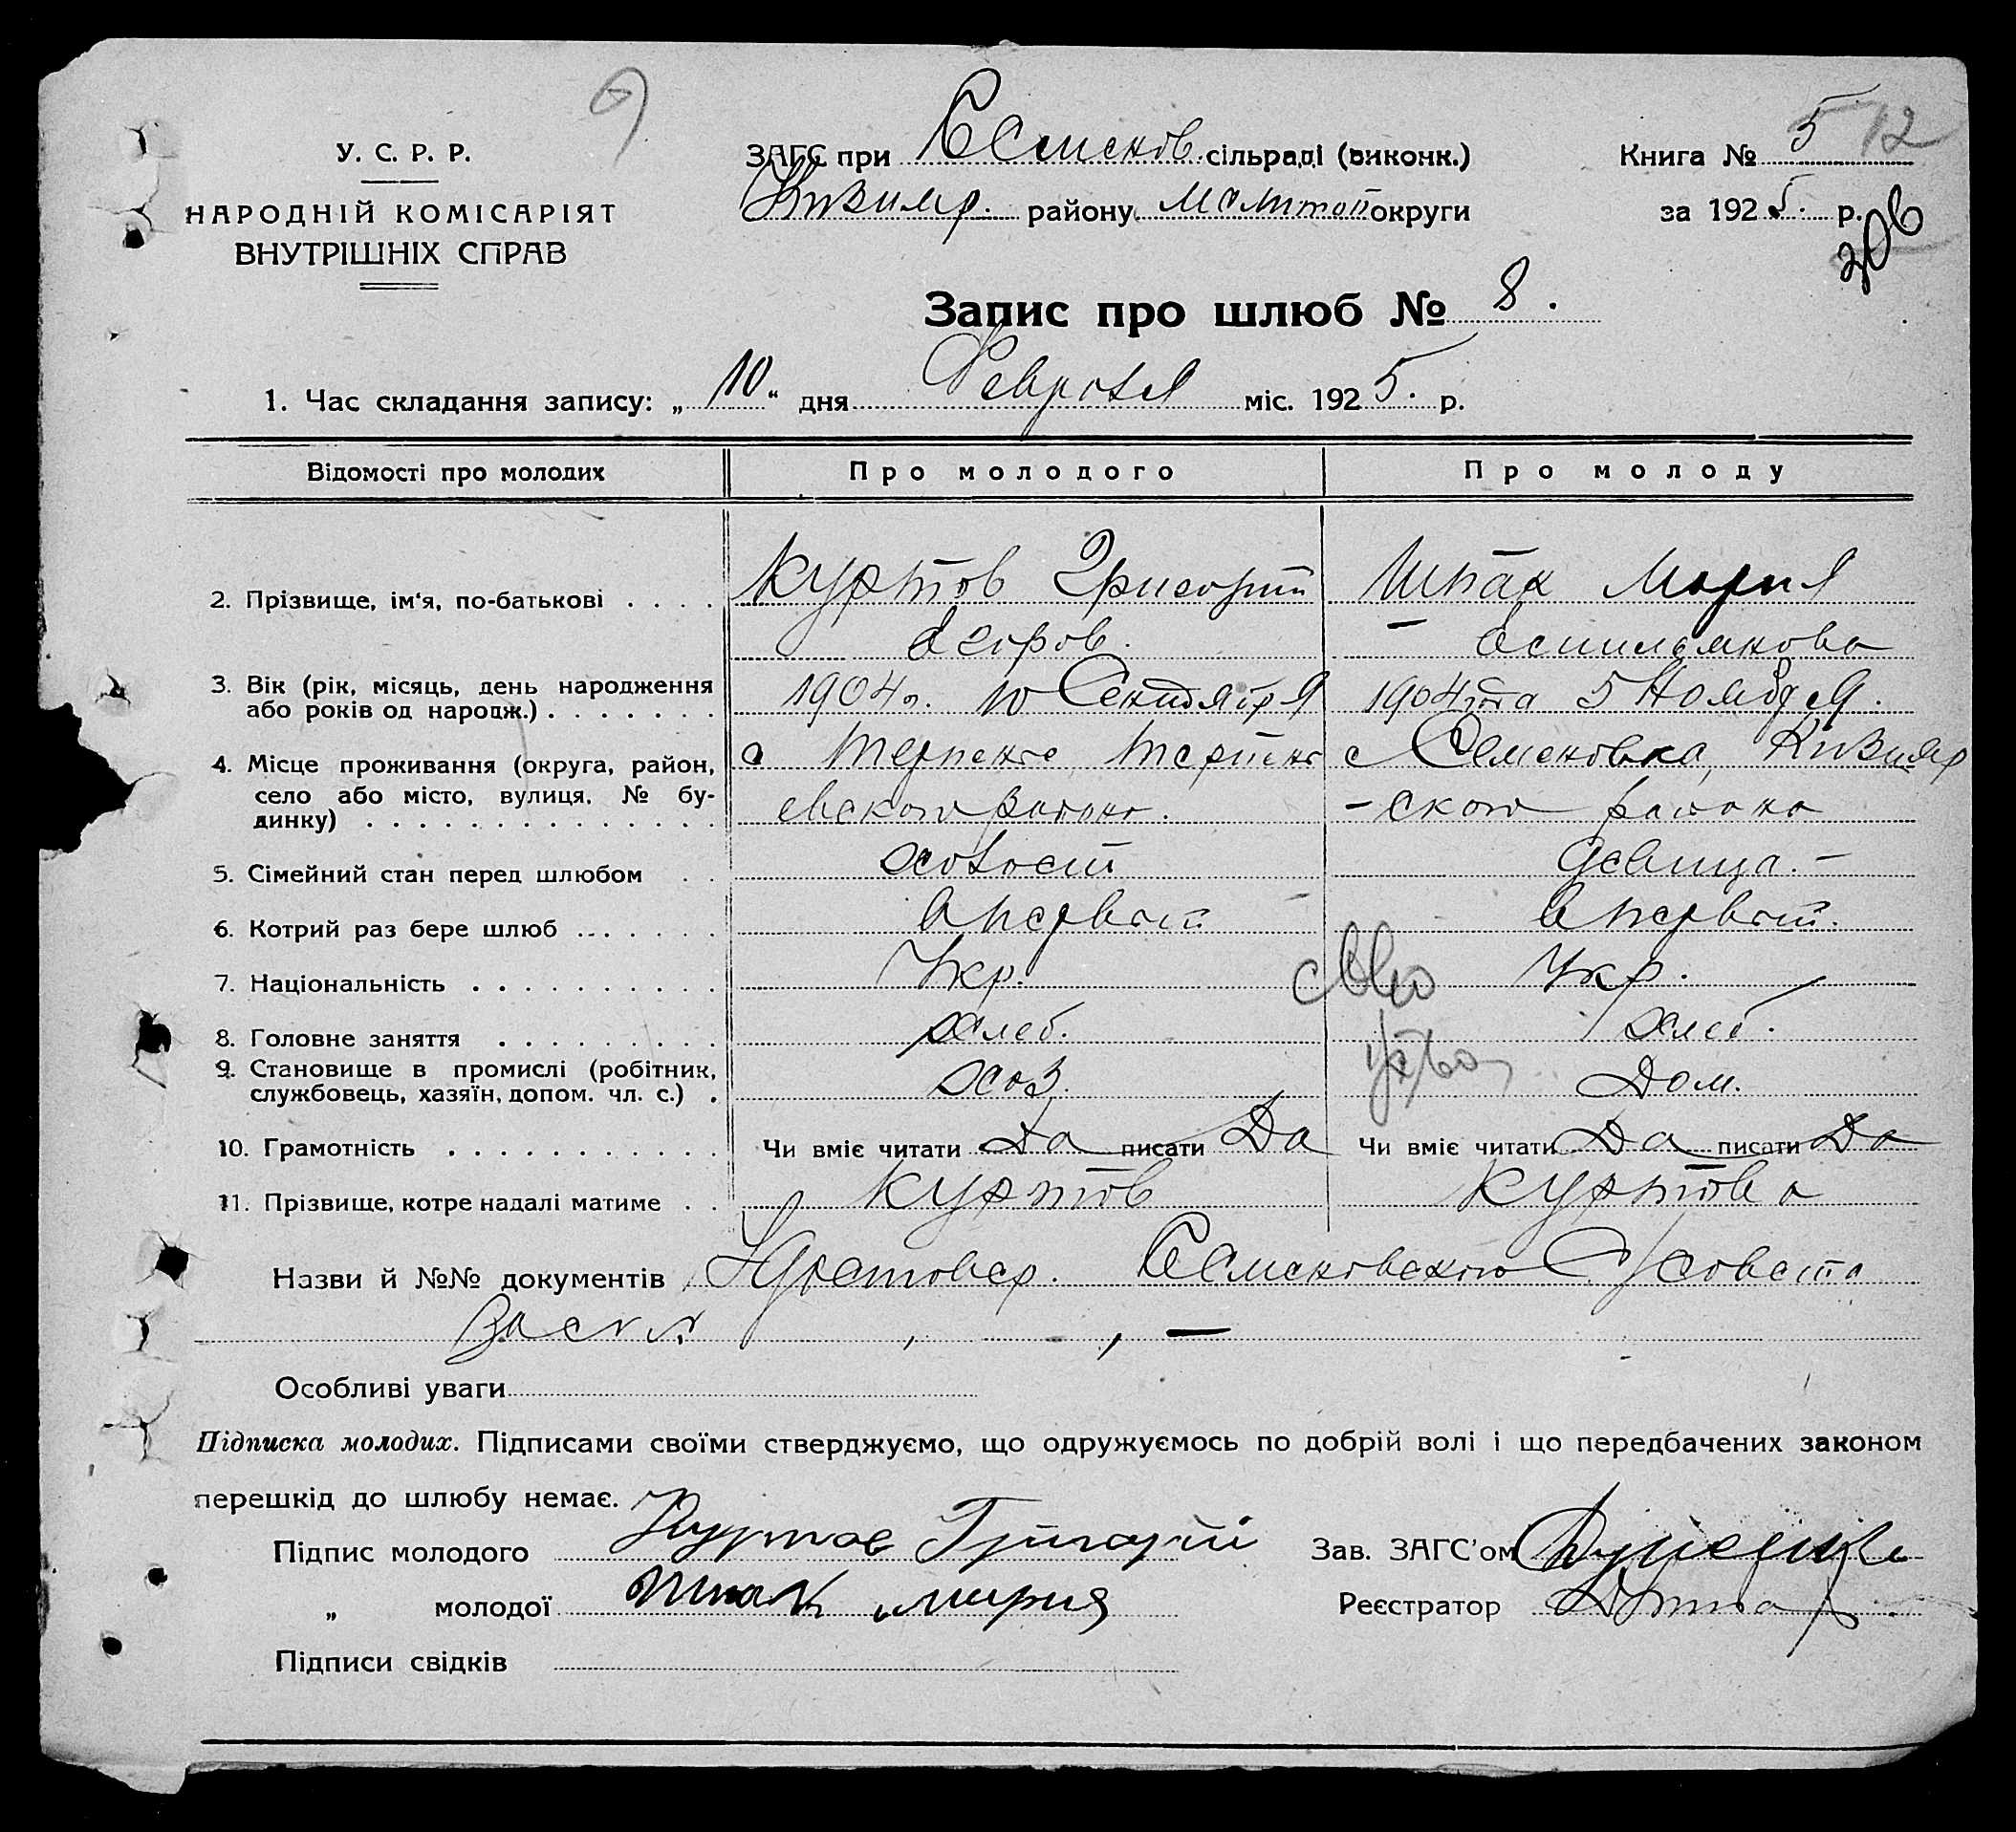 У. С. Р. Р.
НАРОДНІЙ КОМІСАРІЯТ
ВНУТРІШНІХ СПРАВ
ЗАГС при Семенов. сільраді (виконк.)
Кизияр. району Мелитоп округи
Книга № 5 12
за 1925. р.
206
Запис про шлюб № 8.
1. Час складання запису: „10“ дня Февраля міс. 1925. р.
Відомості про молодих Про молодого Про молоду
2. Прізвище, ім‘я, по-батькові . . . . Куртов Григорий Шпак Мария
Егоров.
3. Вік (рік, місяць, день народження 1904 г. 10 Сентября 1904 года 5 Ноября.
або років од народж.) . . . . . . .
4. Місце проживання (округа, район, с Терпенье Терпень с Семеновка, Кизияр
село або місто, вулиця, № бу- евского района. -ского района
динку) . . . . . . . . . . . . . . .
5. Сімейний стан перед шлюбом . . холостй девица. –
6. Котрий раз бере шлюб . . . . . . . в первый в первый.
7. Національність . . . . . . . . . . Укр. Укр.
8. Головне заняття . . . . . . . . . хлеб. хлеб.
9. Становище в промислі (робітник, хоз. Дом.
службовець, хазяїн, допом. чл. с.) .
10. Грамотність . . . . . . . . . . . . Чи вміє читати Да писати Да Чи вміє читати Да писати Да
11. Прізвище, котре надалі матиме . . Куртов Куртова
Назви й №№ документів Удостовер. Семеновского С/совета
Особливі уваги
Підписка молодих. Підписами своїми стверджуємо, що одружуємось по добрій волі і що передбачених законом
перешкід до шлюбу немає.
Підпис молодого Куртов Григорий Зав. ЗАГС’ом
„ молодої Шпак Мария Реєстратор
Підписи свідків